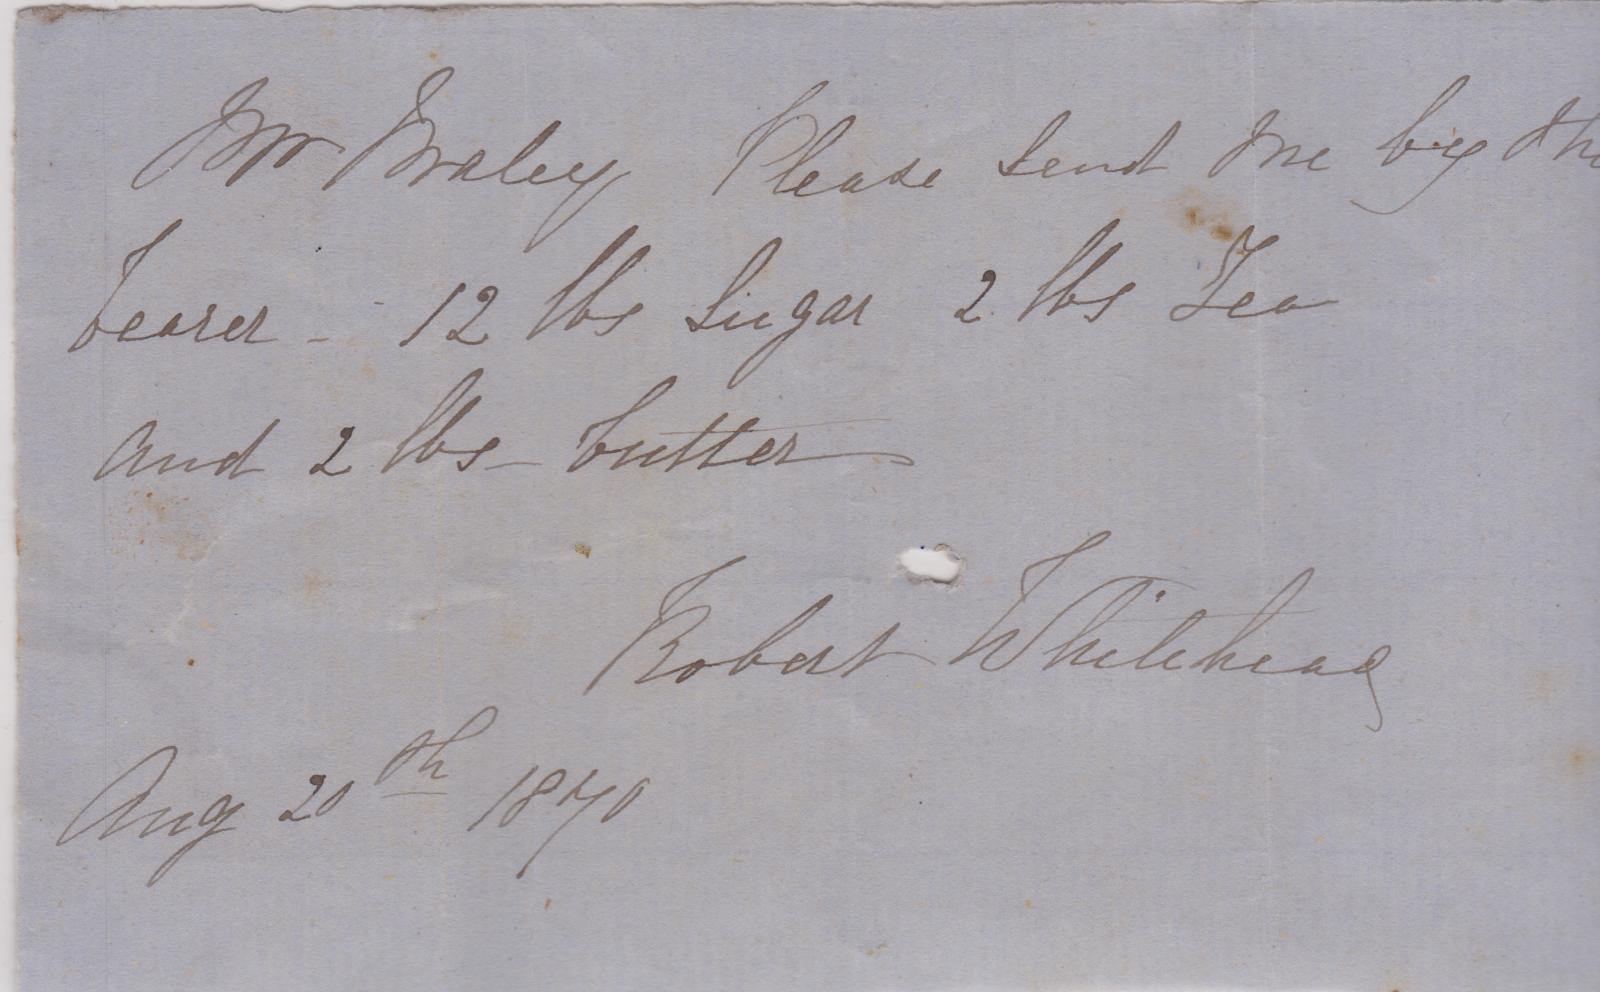 Mr Braley Please send me by the
bearer - 12 lbs Sugar 2 lbs Tea
and 2 lbs - butter
Robert Whitehead
Aug 20th 1870